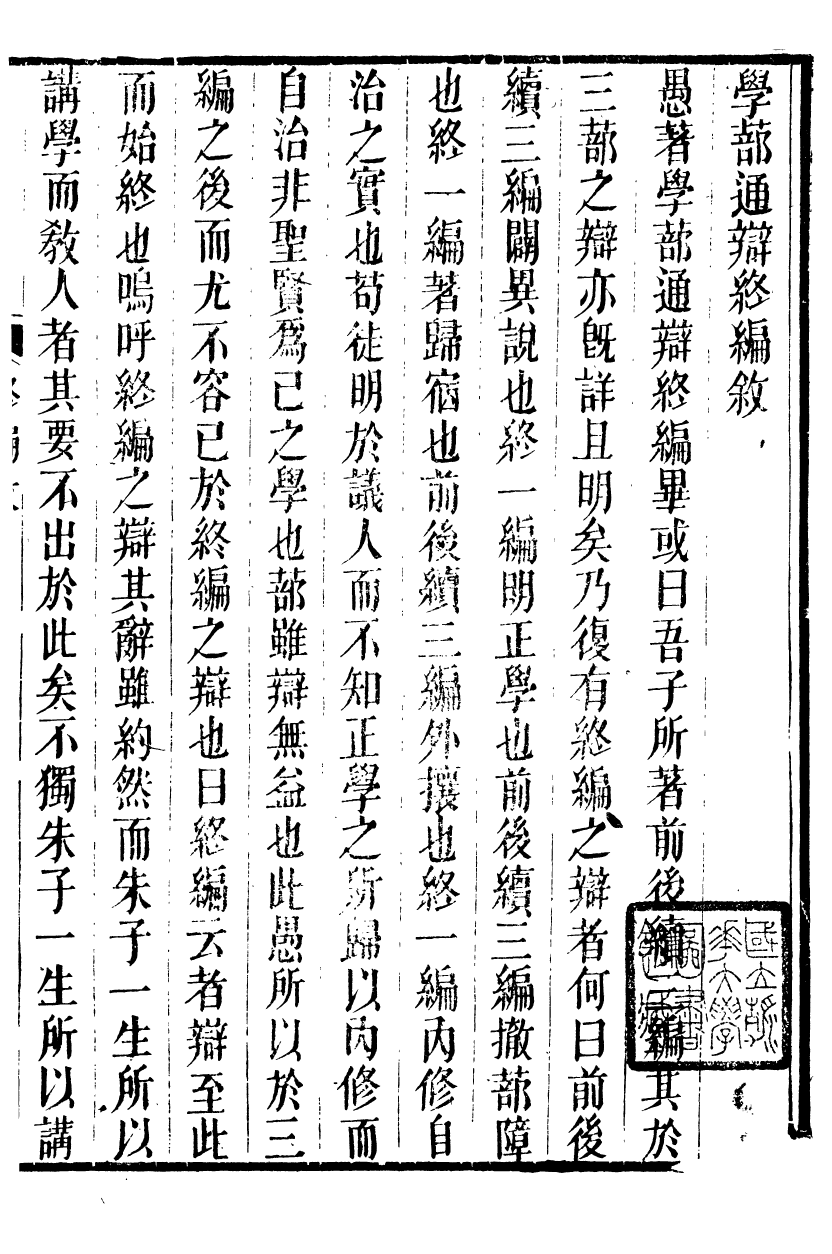 學蔀通辯終編敘
愚著學蔀通辯終編畢或曰吾子所著前後續三編其於
三蔀之辯亦旣詳且明矣乃復有終編之辯者何曰前後
續三編闢異說也終一編明正學也前後續三編撤蔀障
也終一編著歸宿也前後續三編外攘也終一編內修自
治之實也苟徒明於議人而不知正學之所歸以內修而
自治非聖賢爲己之學也蔀雖辯無益也此愚所以於三
編之後而尤不容已於終編之辯也曰終編云者辯至此
而始終也嗚呼終編之辯其辭雖約然而朱子一生所以
講學而敎人者其要不出於此矣不獨朱子一生所以講